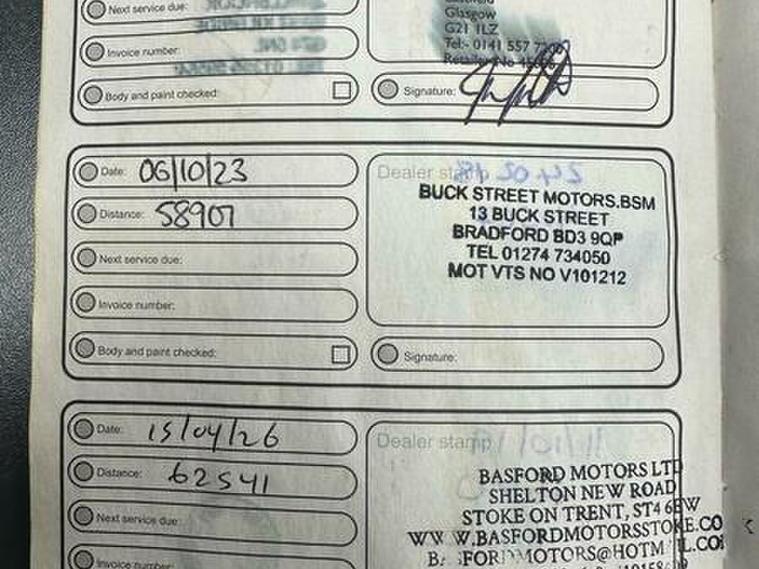 Next service due:
Glasgow
G21 1LZ
Invoice number:
Tel:- 0141 557
Retailer No
Body and paint checked:
Signature:
Date: 06/10/23
Dealer stamp
Distance: 58907
BUCK STREET MOTORS.BSM
13 BUCK STREET
BRADFORD BD3 9QP
TEL 01274 734050
MOT VTS NO V101212
Next service due:
Invoice number:
Body and paint checked:
Signature:
Date: 15/04/26
Dealer stamp
Distance: 62541
BASFORD MOTORS LTD
SHELTON NEW ROAD
STOKE ON TRENT, ST4 6EW
Next service due:
WWW.BASFORDMOTORSSTOKE.CO
Invoice number: